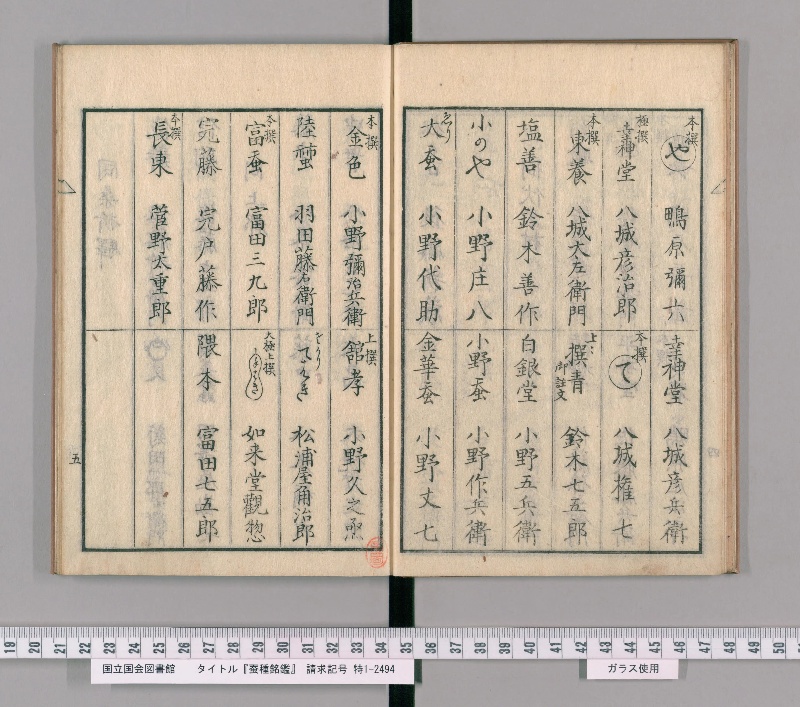 本撰 や 鴨原彌六
幸神堂 八城彦兵衛
極撰 幸神堂 八城彦治郎
本撰 て 八城権七
本撰 東養 八城太左衛門
上々 撰青 御註文 鈴木七五郎
塩善 鈴木善作
白銀堂 小野五兵衛
小のや 小野庄八
小野蚕 小野作兵衛
大蚕 小野代助
金華蚕 小野丈七
本撰 金色 小野彌治兵衛
上撰 舘孝 小野久之
陸蛹 羽田藤右衛門
松浦屋角治郎
本撰 富蚕 富田三九郎
大極上撰 如来堂觀惣
完藤 完戸藤作
隈本 富田七五郎
本撰 長東 菅野太重郎
五
国立国会図書館 タイトル『蚕種銘鑑』 請求記号 特1-2494
ガラス使用
19 20 21 22 23 24 25 26 27 28 29 30 31 32 33 34 35 36 37 38 39 40 41 42 43 44 45 46 47 48 49 50